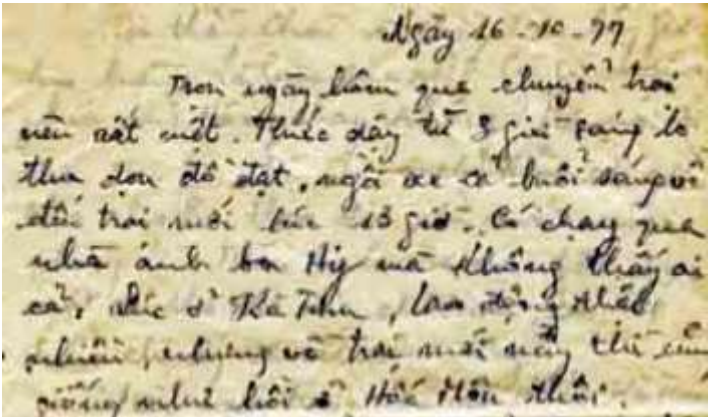 Ngày 16-10-77
Trọn ngày hôm qua chuyển trại
nên rất mệt. Thức dậy từ 3 giờ sáng lo
thu dọn đồ đạt, ngồi xe cả buổi sáng về
đến trại mới lúc 13 giờ. Có chạy qua
nhà anh ba Hy mà không thấy ai
cả, lúc ở Kà Tum, lao động
nhiều nhưng về trại mới nầy thì cũng
giống như hồi ở Hốc Môn thôi.